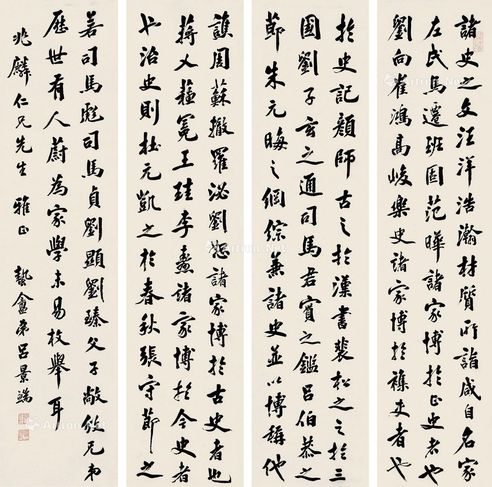 諸史之文汪洋浩瀚材質所詣咸自名家
左氏馬遷班固范曄諸家博於正史者也
劉向崔鴻高峻樂史諸家博於雜史者也
於史記顏師古之於漢書裴松之之於三
國劉子玄之通司馬君實之鑑呂伯恭之
節朱元晦之綱綜兼諸史並以博稱他
譙周蘇轍羅泌劉恕諸家博於古史者也
蔣乂蘇冕王珪李燾諸家博於今史者
也治史則杜元凱之於春秋張守節之
若司馬彪司馬貞劉顯劉臻父子敞攽兄弟
歷世有人蔚為家學未易枚舉耳
兆麟仁兄先生 雅正 蟄盦弟呂景端